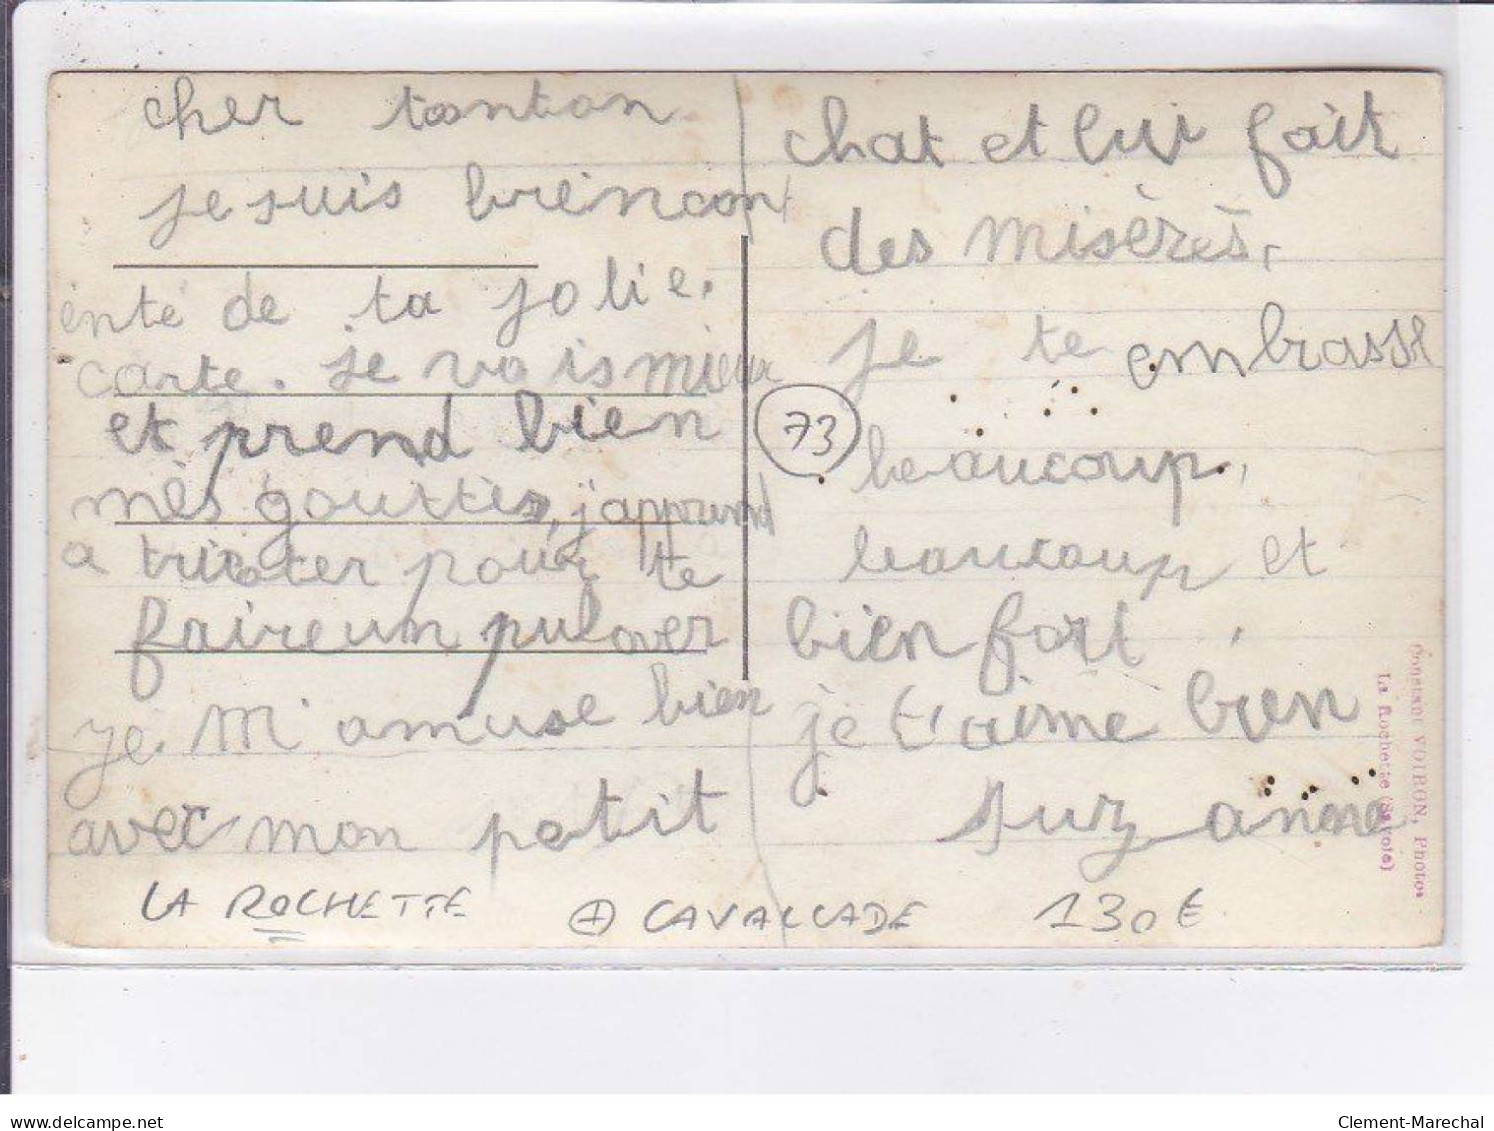 cher tonton
je suis briencont
enté de ta jolie.
carte. je vais mieux
et prend bien
mès gouttes, j'apprend
a tricoter pour te
faire un pulover
je. m'amuse bien
avec mon petit
chat et lui fait
des misères,
je te embrasse
beaucoup,
beaucoup et
bien fort,
je t'aime bien
Suzanne
73
LA ROCHETTE + CAVALCADE 130€
Constant VOIRON, Photos
La Rochette (Savoie)
delcampe.net
Clement-Marechal